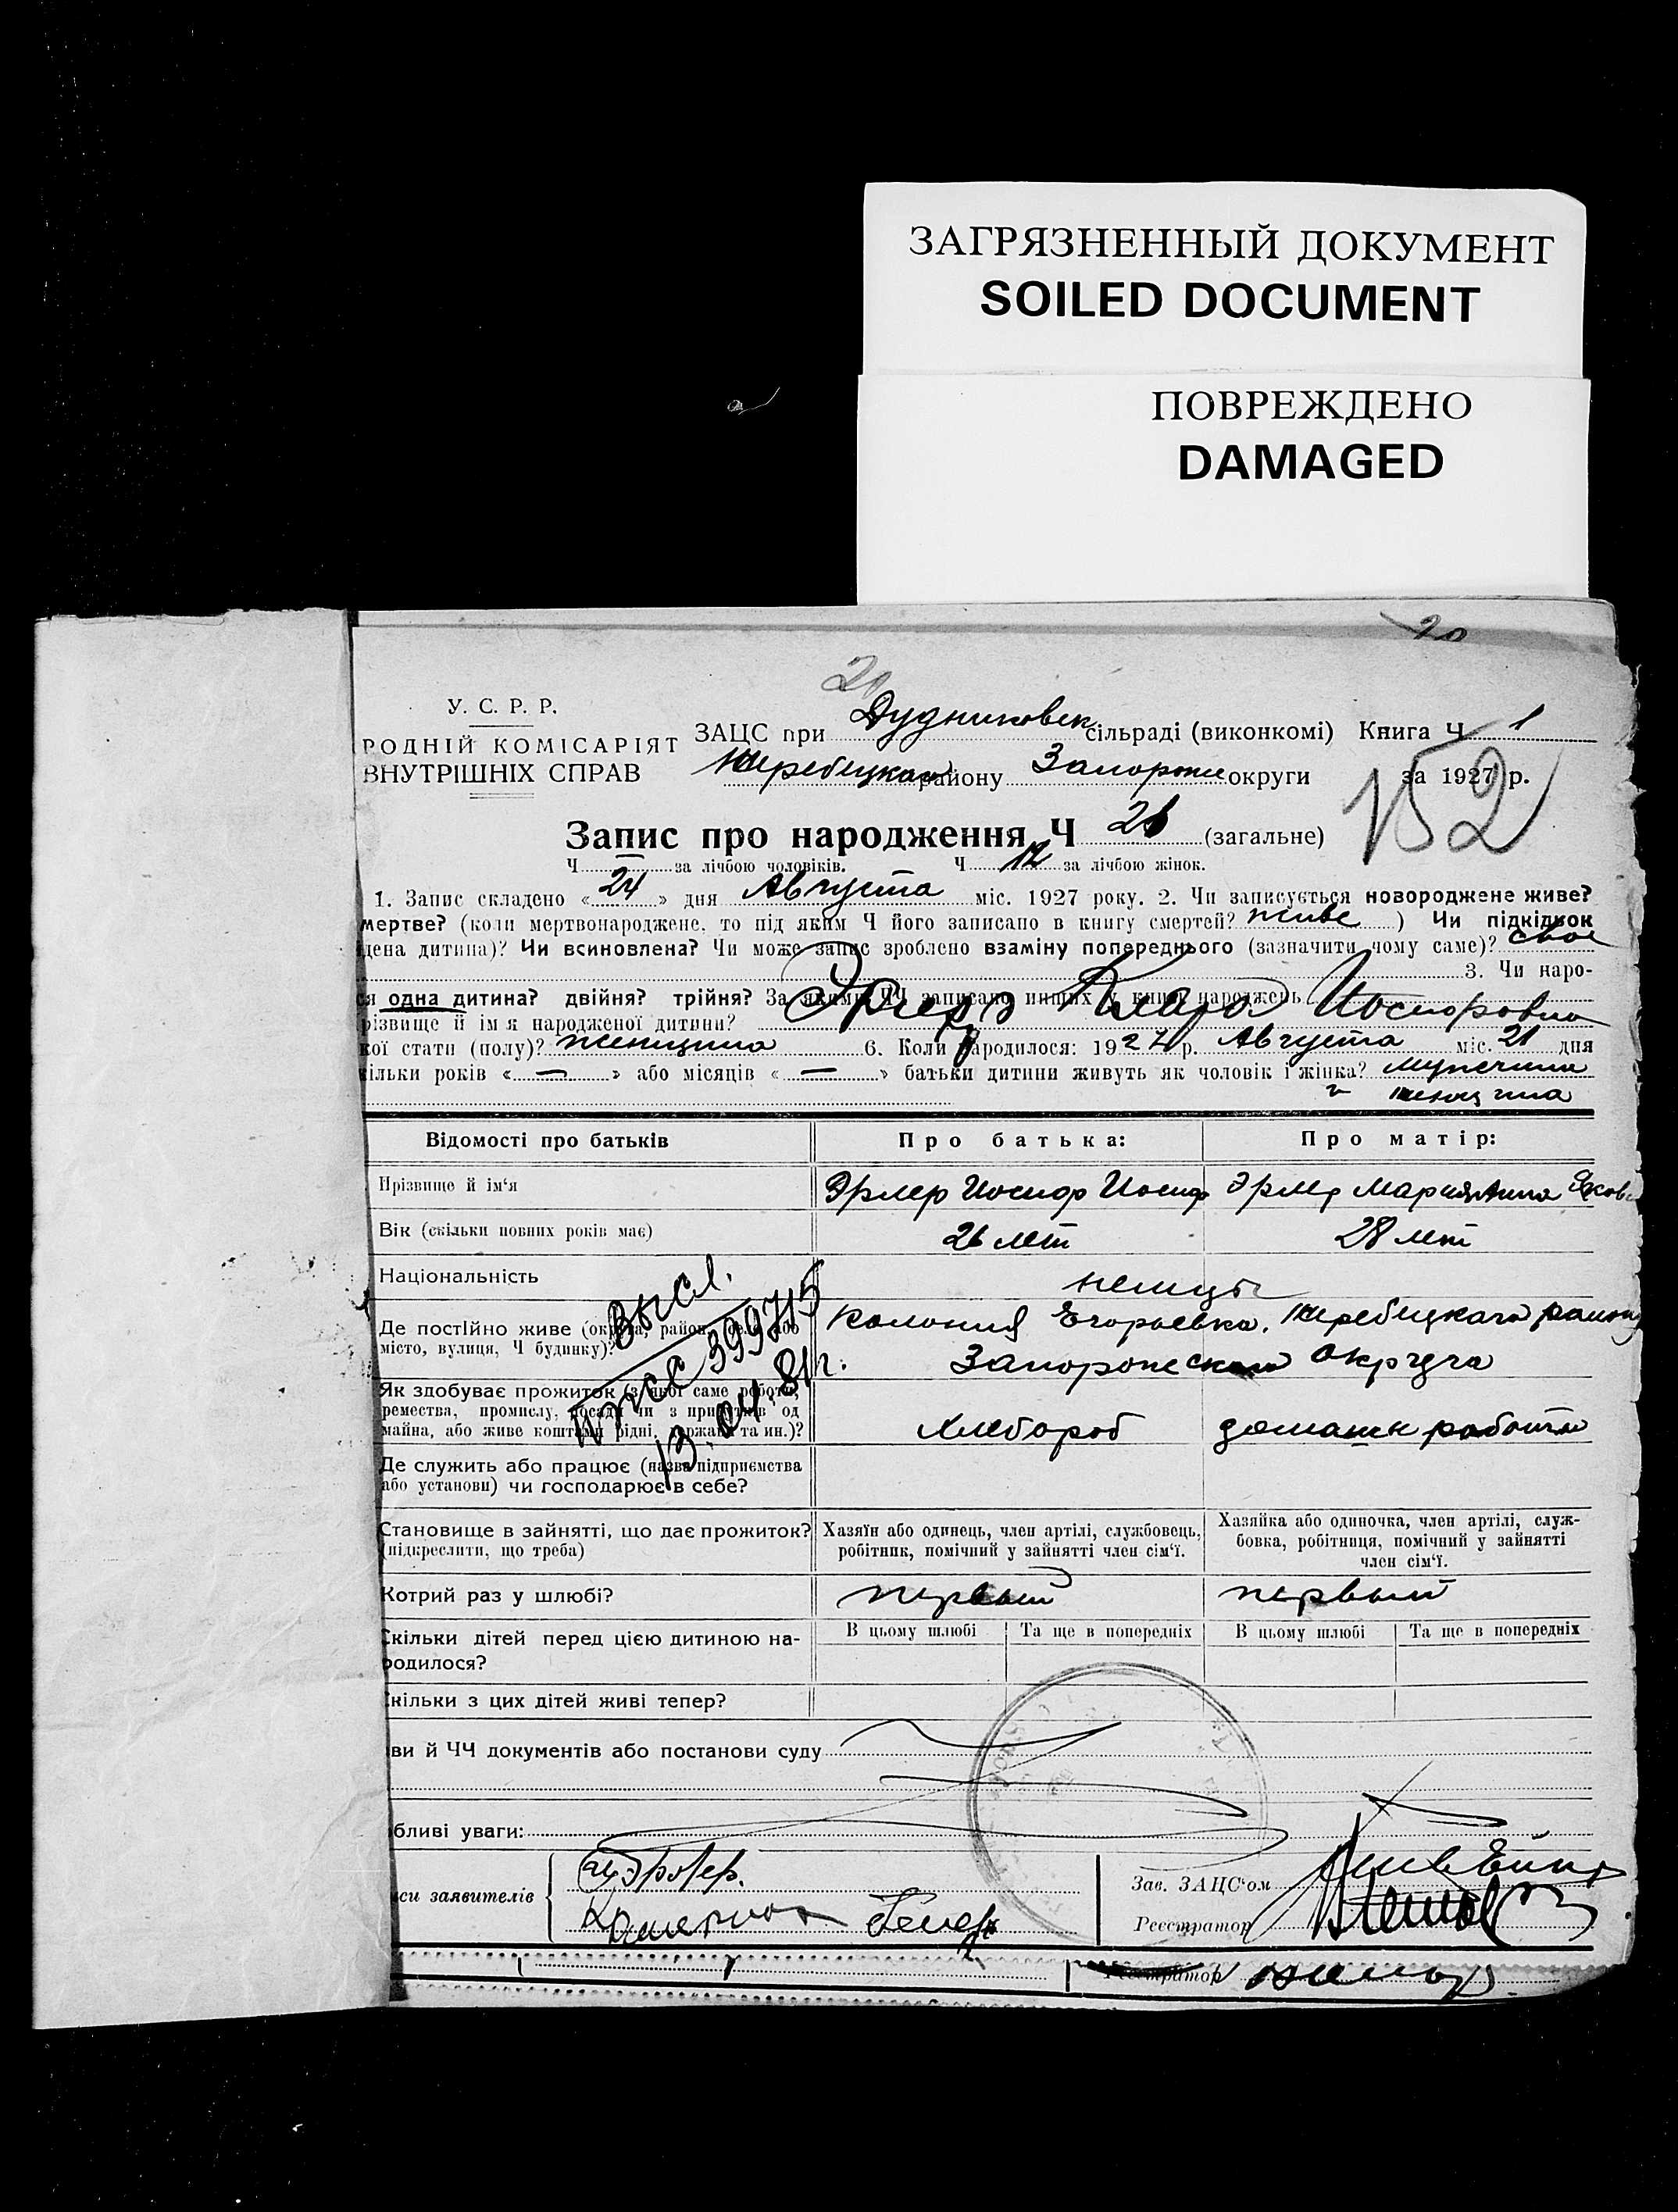 ЗАГРЯЗНЕННЫЙ ДОКУМЕНТ
SOILED DOCUMENT
ПОВРЕЖДЕНО
DAMAGED
20
20
У. С. Р. Р.
РОДНІЙ КОМІСАРІЯТ
ВНУТРІШНІХ СПРАВ
ЗАЦС при Дудниковск сільраді (виконкомі) Книга Ч 1
Жеребецкаго району Запорож округи за 1927 р.
152
Запис про народження Ч 21 (загальне)
Ч — за лічбою чоловіків. Ч 12 за лічбою жінок.
1. Запис складено « 24 » дня Августа міс. 1927 року. 2. Чи записується новороджене живе?
мертве? (коли мертвонароджене, то під яким Ч його записано в книгу смертей? живе ) Чи підкідьок
дена дитина)? Чи всиновлена? Чи може запис зроблено взаміну попереднього (зазначити чому саме)? свое
3. Чи наро-
ся одна дитина? двійня? трійня? За якими ЧЧ записано инших у книзі народжень
різвище й ім'я народженої дитини? Эрлер Клара Иосифовна
кої стати (полу)? женщина 6. Коли народилося: 1927 р. Августа міс. 21 дня
кільки років « — » або місяців « — » батьки дитини живуть як чоловік і жінка? мужчина
и женщина
Відомості про батьків Про батька: Про матір:
Прізвище й ім'я Эрлер Иосиф Иосиф Эрлер Марианна Яковл
Вік (скільки повних років має) 26 лет 28 лет
Національність немцы
Де постійно живе (округа, район, село або
місто, вулиця, Ч будинку)? колония Егорьевка, Жеребецкаго району
Запорожскаго округа
Як здобуває прожиток (з якої саме роботи,
ремества, промислу, посади чи з прибутків од
майна, або живе коштами рідні, держави та ин.)? Хлебороб домашн работа
Высл.
399715
13.04.81г.
Де служить або працює (назва підприємства
або установи) чи господарює в себе?
Становище в зайнятті, що дає прожиток?
(підкреслити, що треба)
Хазяїн або одинець, член артілі, службовець,
робітник, помічний у зайнятті член сім'ї.
Хазяйка або одиночка, член артілі, служ-
бовка, робітниця, помічний у зайнятті
член сім'ї.
Котрий раз у шлюбі? первый первый
Скільки дітей перед цією дитиною на-
родилося?
В цьому шлюбі Та ще в попередніх В цьому шлюбі Та ще в попередніх
Скільки з цих дітей живі тепер?
ви й ЧЧ документів або постанови суду
бливі уваги:
си заявителів
Зав. ЗАЦС'ом
Реєстратор
Реєстратор